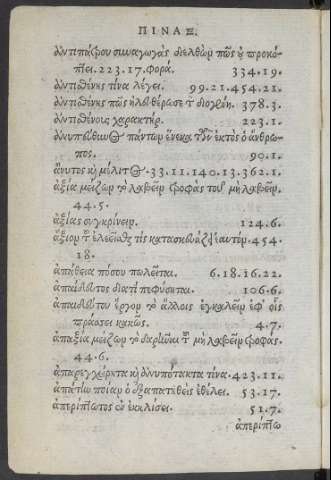 ΠΙΝΑΞ.
ἀντιπάτρου συναγωγὰς διελθὼν πῶς οὐ προκό-
πτει. 223. 17. φορά. 334. 19.
ἀντισθένης τίνα λέγει. 99. 21. 454. 21.
ἀντισθένης πῶς ἠλευθέρωσε τ διογλύω. 378. 3.
ἀντισθένους χαρακτήρ. 223. 1.
πάντων ἕνεκα τῶν ἐκτὸς ὁ ἄνθρω-
πος. 90. 1.
ἄνυτος κỳ μέλιτος. 33. 11. 140. 13. 362. 1.
ἀξία μείζων τὸ λαβεῖν τροφὰς τοῦ μὴ λαβεῖν.
44. 5.
ἀξίας συγκρίνειν. 124. 6.
ἄξιον τίς κατασκευάζει αὐτόν. 454.
18.
ἀπάθεια πόσου πωλεῖται. 6. 18. 16. 22.
ἀπαίδευτος διατί πεφύκαται. 106. 6.
ἀπαιδεύτου ἔργον τὸ ἄλλοις ἐγκαλεῖν ἐφ' οἷς
πράσσει κακῶς. 4. 7.
ἀπαξία μείζων τὸ τ μὴ λαβεῖν τροφάς.
44. 6.
ἀπαρεγχείρητα κỳ ἀνυπότακτα τίνα. 423. 11.
ἀπάτην ποίαν ὁ ἐξαπατηθεὶς ἐθέλει. 53. 17.
ἀπερίπτωτος ἐν ἐκκλίσει. 51. 7.
ἀπερίπτω